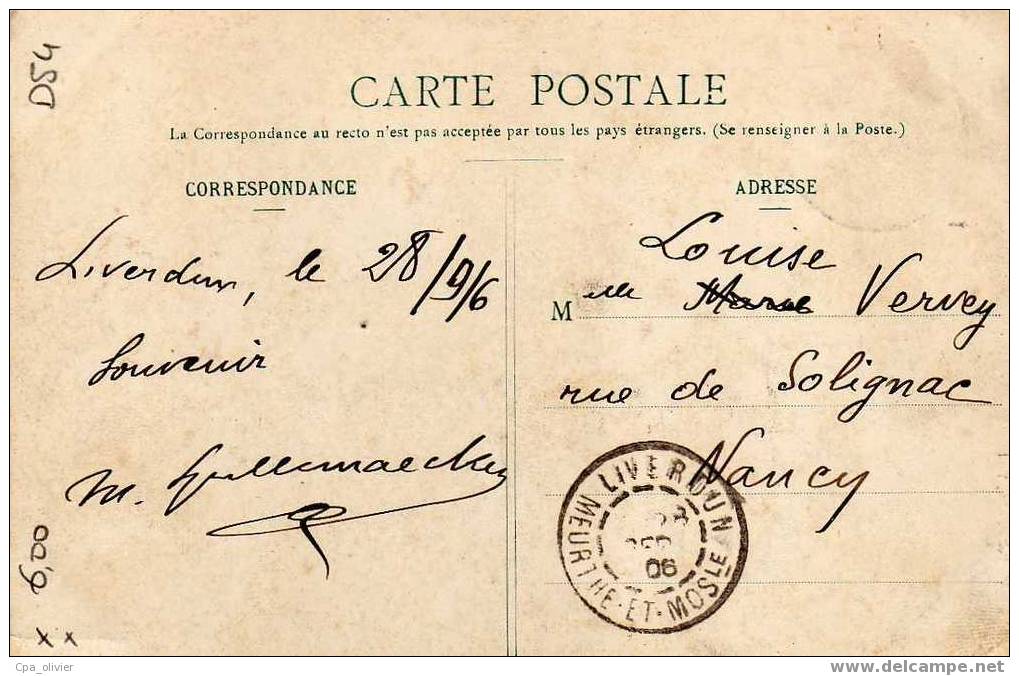 D54
CARTE POSTALE
La Correspondance au recto n'est pas acceptée par tous les pays étrangers. (Se renseigner à la Poste.)
CORRESPONDANCE
Liverdun, le 28/9/6
Souvenir
M.
6,00
x x
ADRESSE
Louise
Mlle Marie Vervey
rue de Solignac
Nancy
LIVERDUN
28
SEPT
06
MEURTHE-ET-MOSLE
Cpa_olivier
www.delcampe.net